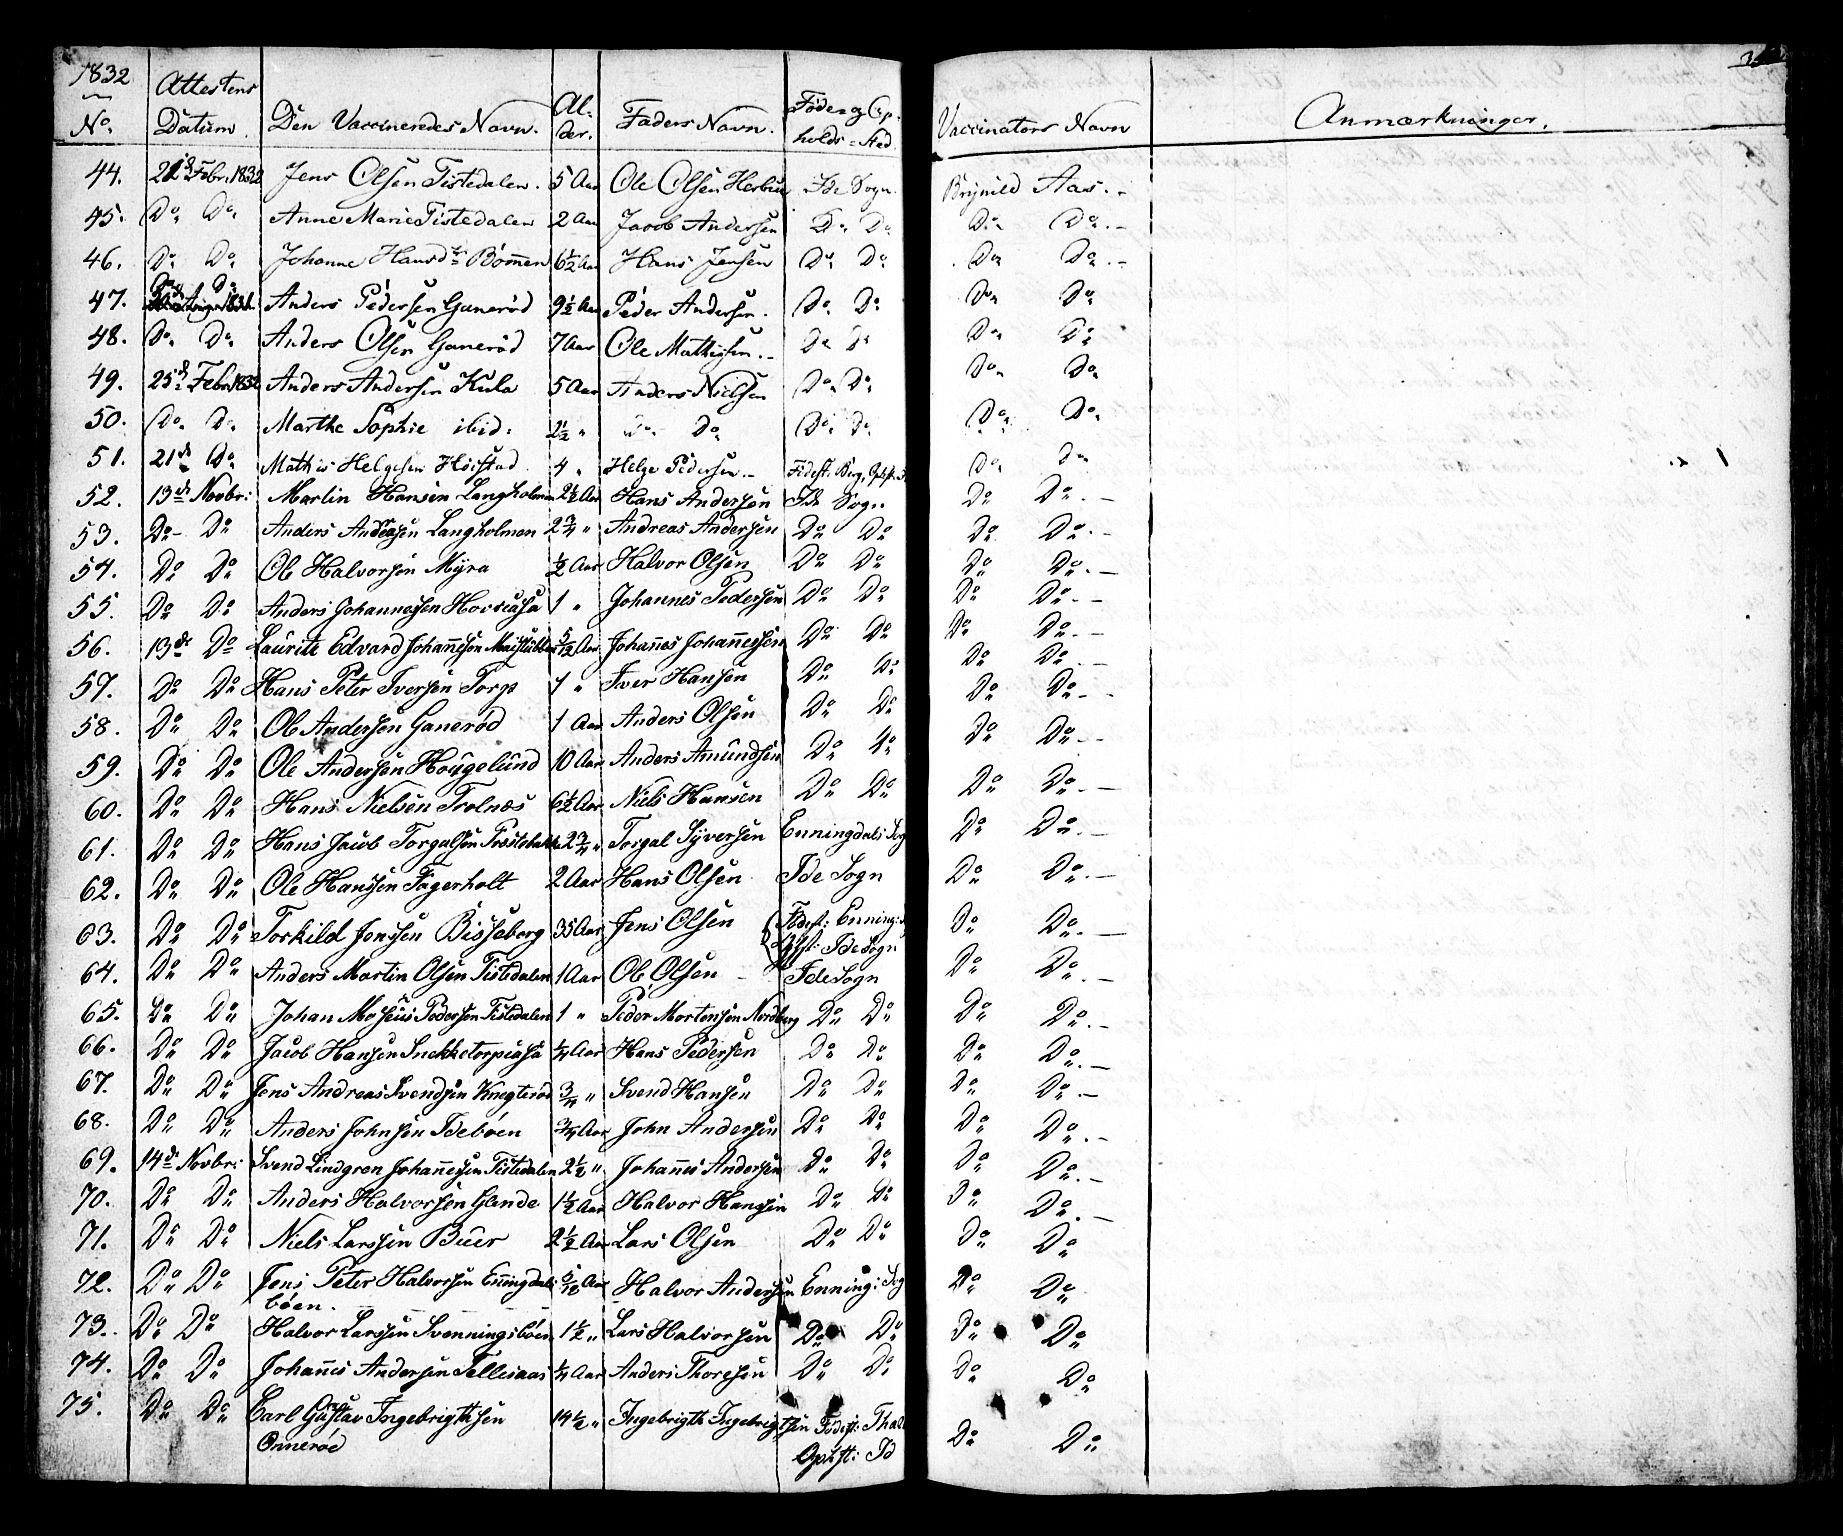 1832
No. Attestens Datum. Den Vaccineredes Navn. Al-der. Faders Navn. Føde- og Op-holds-Sted. Vaccinators Navn Anmærkninger.
44. 21de Febr. 1832 Jens Olsen Tistedalen. 5 Aar Ole Olsen Ide Sogn. Brynild Aas.
45. Do. Do. Anne Marie Tistedalen 2 Aar Jacob Andersen Do. Do. Do. Do.
46. Do. Do. Johanne Hansdtr Bømmen 6½ Aar Hans Jensen Do. Do. Do. Do.
47. Do. Do. Anders Pedersen Ganerød 9½ Aar Peder Andersen. Do. Do. Do. Do.
48. Do. Do. Anders Olsen Ganerød 7 Aar Ole Mathissen. Do. Do. Do. Do.
49. 25de Febr. 1832 Anders Andersen Kula 5 Aar Anders Nielsen Do. Do. Do. Do.
50. Do. Do. Marthe Sophie ibid. 2½ " Do. Do. Do. Do. Do. Do.
51. 21de Do. Mathis Helgesen Høistad 4 " Helge Pedersen Fødest: Berg, Do. Do.
52. 13de Novbr: Martin Hansen Langholmen 2½ Aar Hans Andersen Ide Sogn Do. Do.
53. Do. Do. Anders Andersen Langholmen 2¾ " Andreas Andersen Do Do Do Do.
54. Do Do Ole Halvorsen Myra ½ Aar Halvor Olsen Do Do Do Do.
55. Do Do Anders Johannesen 1 " Johannes Pedersen Do Do Do Do.
56. 13de Do Lauritz Edvard Johannesen 5/12 Aar Johannes Johannessen Do Do Do Do.
57. Do Do Hans Peter Iversen Torp 1 " Iver Hansen Do Do Do Do.
58. Do Do Ole Andersen Ganerød 1 Aar Anders Olsen Do Do Do Do.
59. Do Do Ole Andersen Hougelund 10 Aar Anders Amundsen Do Do Do Do.
60. Do Do Hans Nielsen Trolnæs 6½ Aar Niels Hansen Do Do Do Do.
61. Do Do Hans Jacob Torgalsen 2¾ " Torgal Syversen Enningdals Sog Do Do.
62. Do Do Ole Hansen Fagerholt 2 Aar Hans Olsen Ide Sogn Do Do.
63. Do Do Torkild Jensen Bisseberg 35 Aar Jens Olsen Fødest: Enning: Do Do.
Opst: Ide Sogn
64. Do Do Anders Martin Olsen Tistedalen 1 Aar Ole Olsen Ide Sogn Do Do.
65. Do Do Johan Pedersen Tistedalen 1 " Peder Mortensen Nordberg Do Do Do Do.
66. Do Do Jacob Hansen ¼ Aar Hans Pedersen Do Do Do Do.
67. Do Do Jens Andreas Svendsen Knegterød ¾ " Svend Hansen Do Do Do Do.
68. Do Do Anders Johnsen Idebøen ¾ Aar John Andersen Do Do Do Do.
69. 14de Novbr: Svend Lindgren Johannesen Tistedalen 2½ " Johannes Andersen Do Do Do Do.
70. Do Do Anders Halvorsen Glende 1½ Aar Halvor Hansen Do Do Do Do.
71. Do Do Niels Larssen Buer 2½ Aar Lars Olsen Do Do Do Do
72. Do Do Jens Peter Halvorsen Enningdals 5/12 Aar Halvor Andersen Enning: Sog Do Do
bøen.
73. Do Do Halvor Larssen Svenningsbøen 1½ " Lars Halvorsen Do Do Do Do
74. Do Do Johannes Andersen Tellesaas ¼ Aar Anders Thoresen Do Do Do Do
75. Do Do Carl Gustav Ingebrigthsen 14½ " Ingebrigth Ingebrigtsen Fødest: Do Do
Onnerød Opst: Id